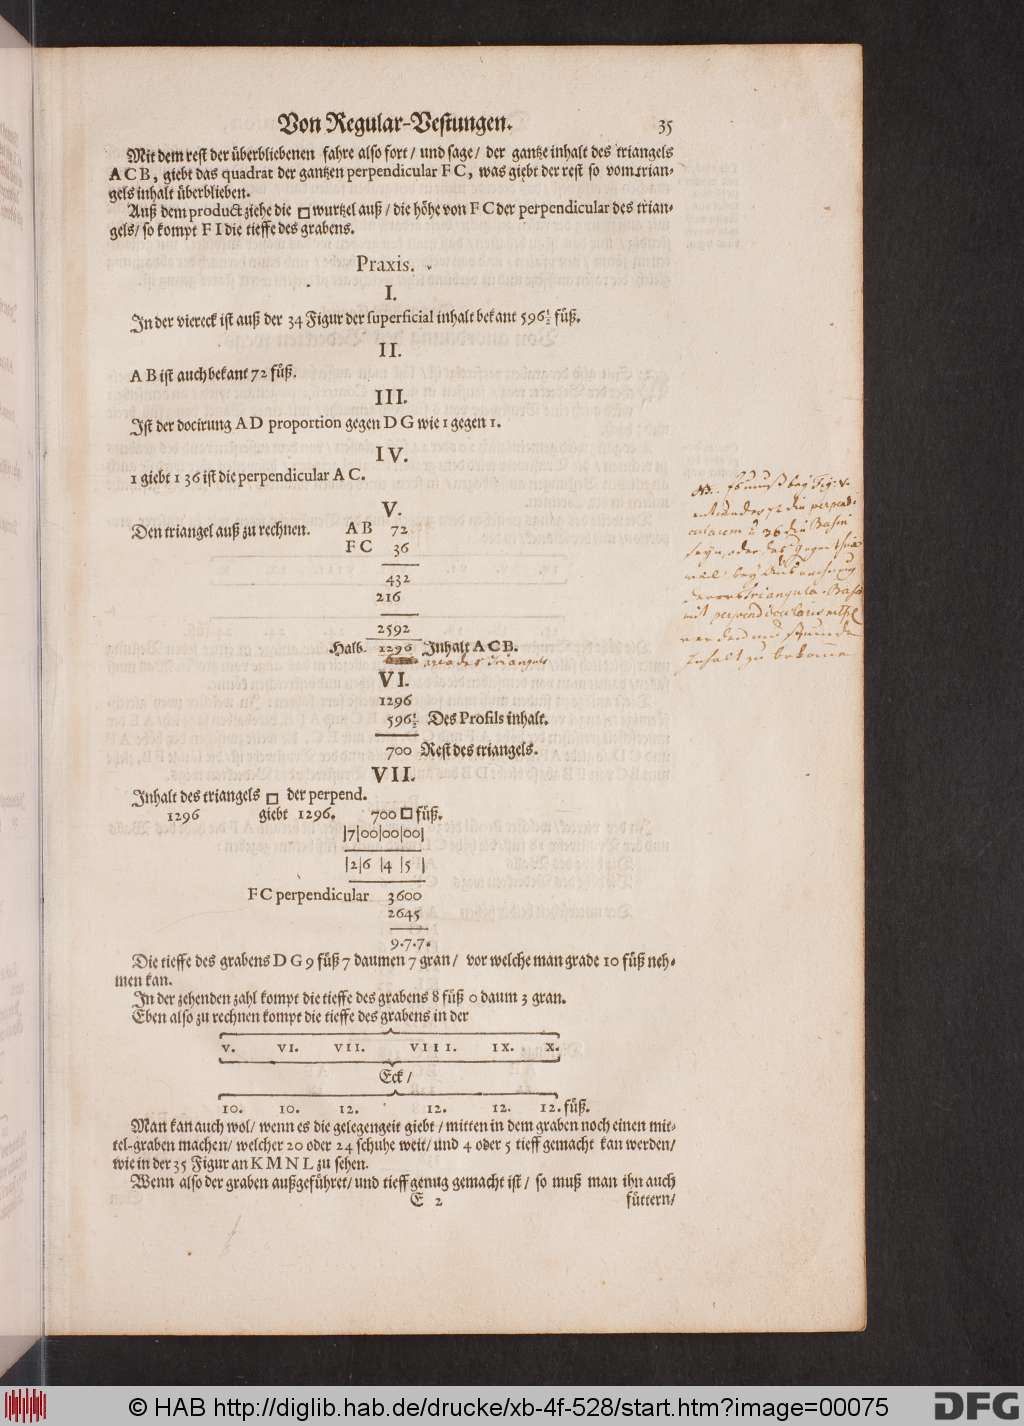 Von Regular-Vestungen. 35
Mit dem rest der überbliebenen fahre also fort / und sage / der gantze inhalt des triangels
A C B, giebt das quadrat der gantzen perpendicular F C, was giebt der rest so vom trian-
gels inhalt überblieben.
Auß dem product ziehe die □ wurtzel auß / die höhe von F C der perpendicular des trian-
gels / so kompt F I die tieffe des grabens.
Praxis.
I.
In der viereck ist auß der 34 Figur der superficial inhalt bekant 596½ füß.
II.
A B ist auch bekant 72 füß.
III.
Ist der docirung A D proportion gegen D G wie 1 gegen 1.
IV.
1 giebt 1 36 ist die perpendicular A C.
V.
Den triangel auß zu rechnen. A B 72
F C 36
432
216
2592
Halb. 1296 Inhalt A C B.
area des Triangels
VI.
1296
596½ Des Profils inhalt.
700 Rest des triangels.
VII.
Inhalt des triangels □ der perpend.
1296 giebt 1296. 700 □ füß.
|7|00|00|00|
|2|6 |4 |5 |
F C perpendicular 3600
2645
9.7.7.
Die tieffe des grabens D G 9 füß 7 daumen 7 gran / vor welche man grade 10 füß neh-
men kan.
In der zehenden zahl kompt die tieffe des grabens 8 füß 0 daum 3 gran.
Eben also zu rechnen kompt die tieffe des grabens in der
V. VI. VII. VIII. IX. X.
Eck /
10. 10. 12. 12. 12. 12. füß.
Man kan auch wol / wenn es die gelegengeit giebt / mitten in dem graben noch einen mit-
tel-graben machen / welcher 20 oder 24 schuhe weit / und 4 oder 5 tieff gemacht kan werden /
wie in der 35 Figur an K M N L zu sehen.
Wenn also der graben außgeführet / und tieff genug gemacht ist / so muß man ihn auch
E 2 füttern /
NB. muß bey Fig: V.
72 die perpendi
cularem 36 die Basin
seyn, oder das
bey
Triangula Basis
mit perpendiculari
werden
Inhalt zu bekomme
© HAB http://diglib.hab.de/drucke/xb-4f-528/start.htm?image=00075
DFG